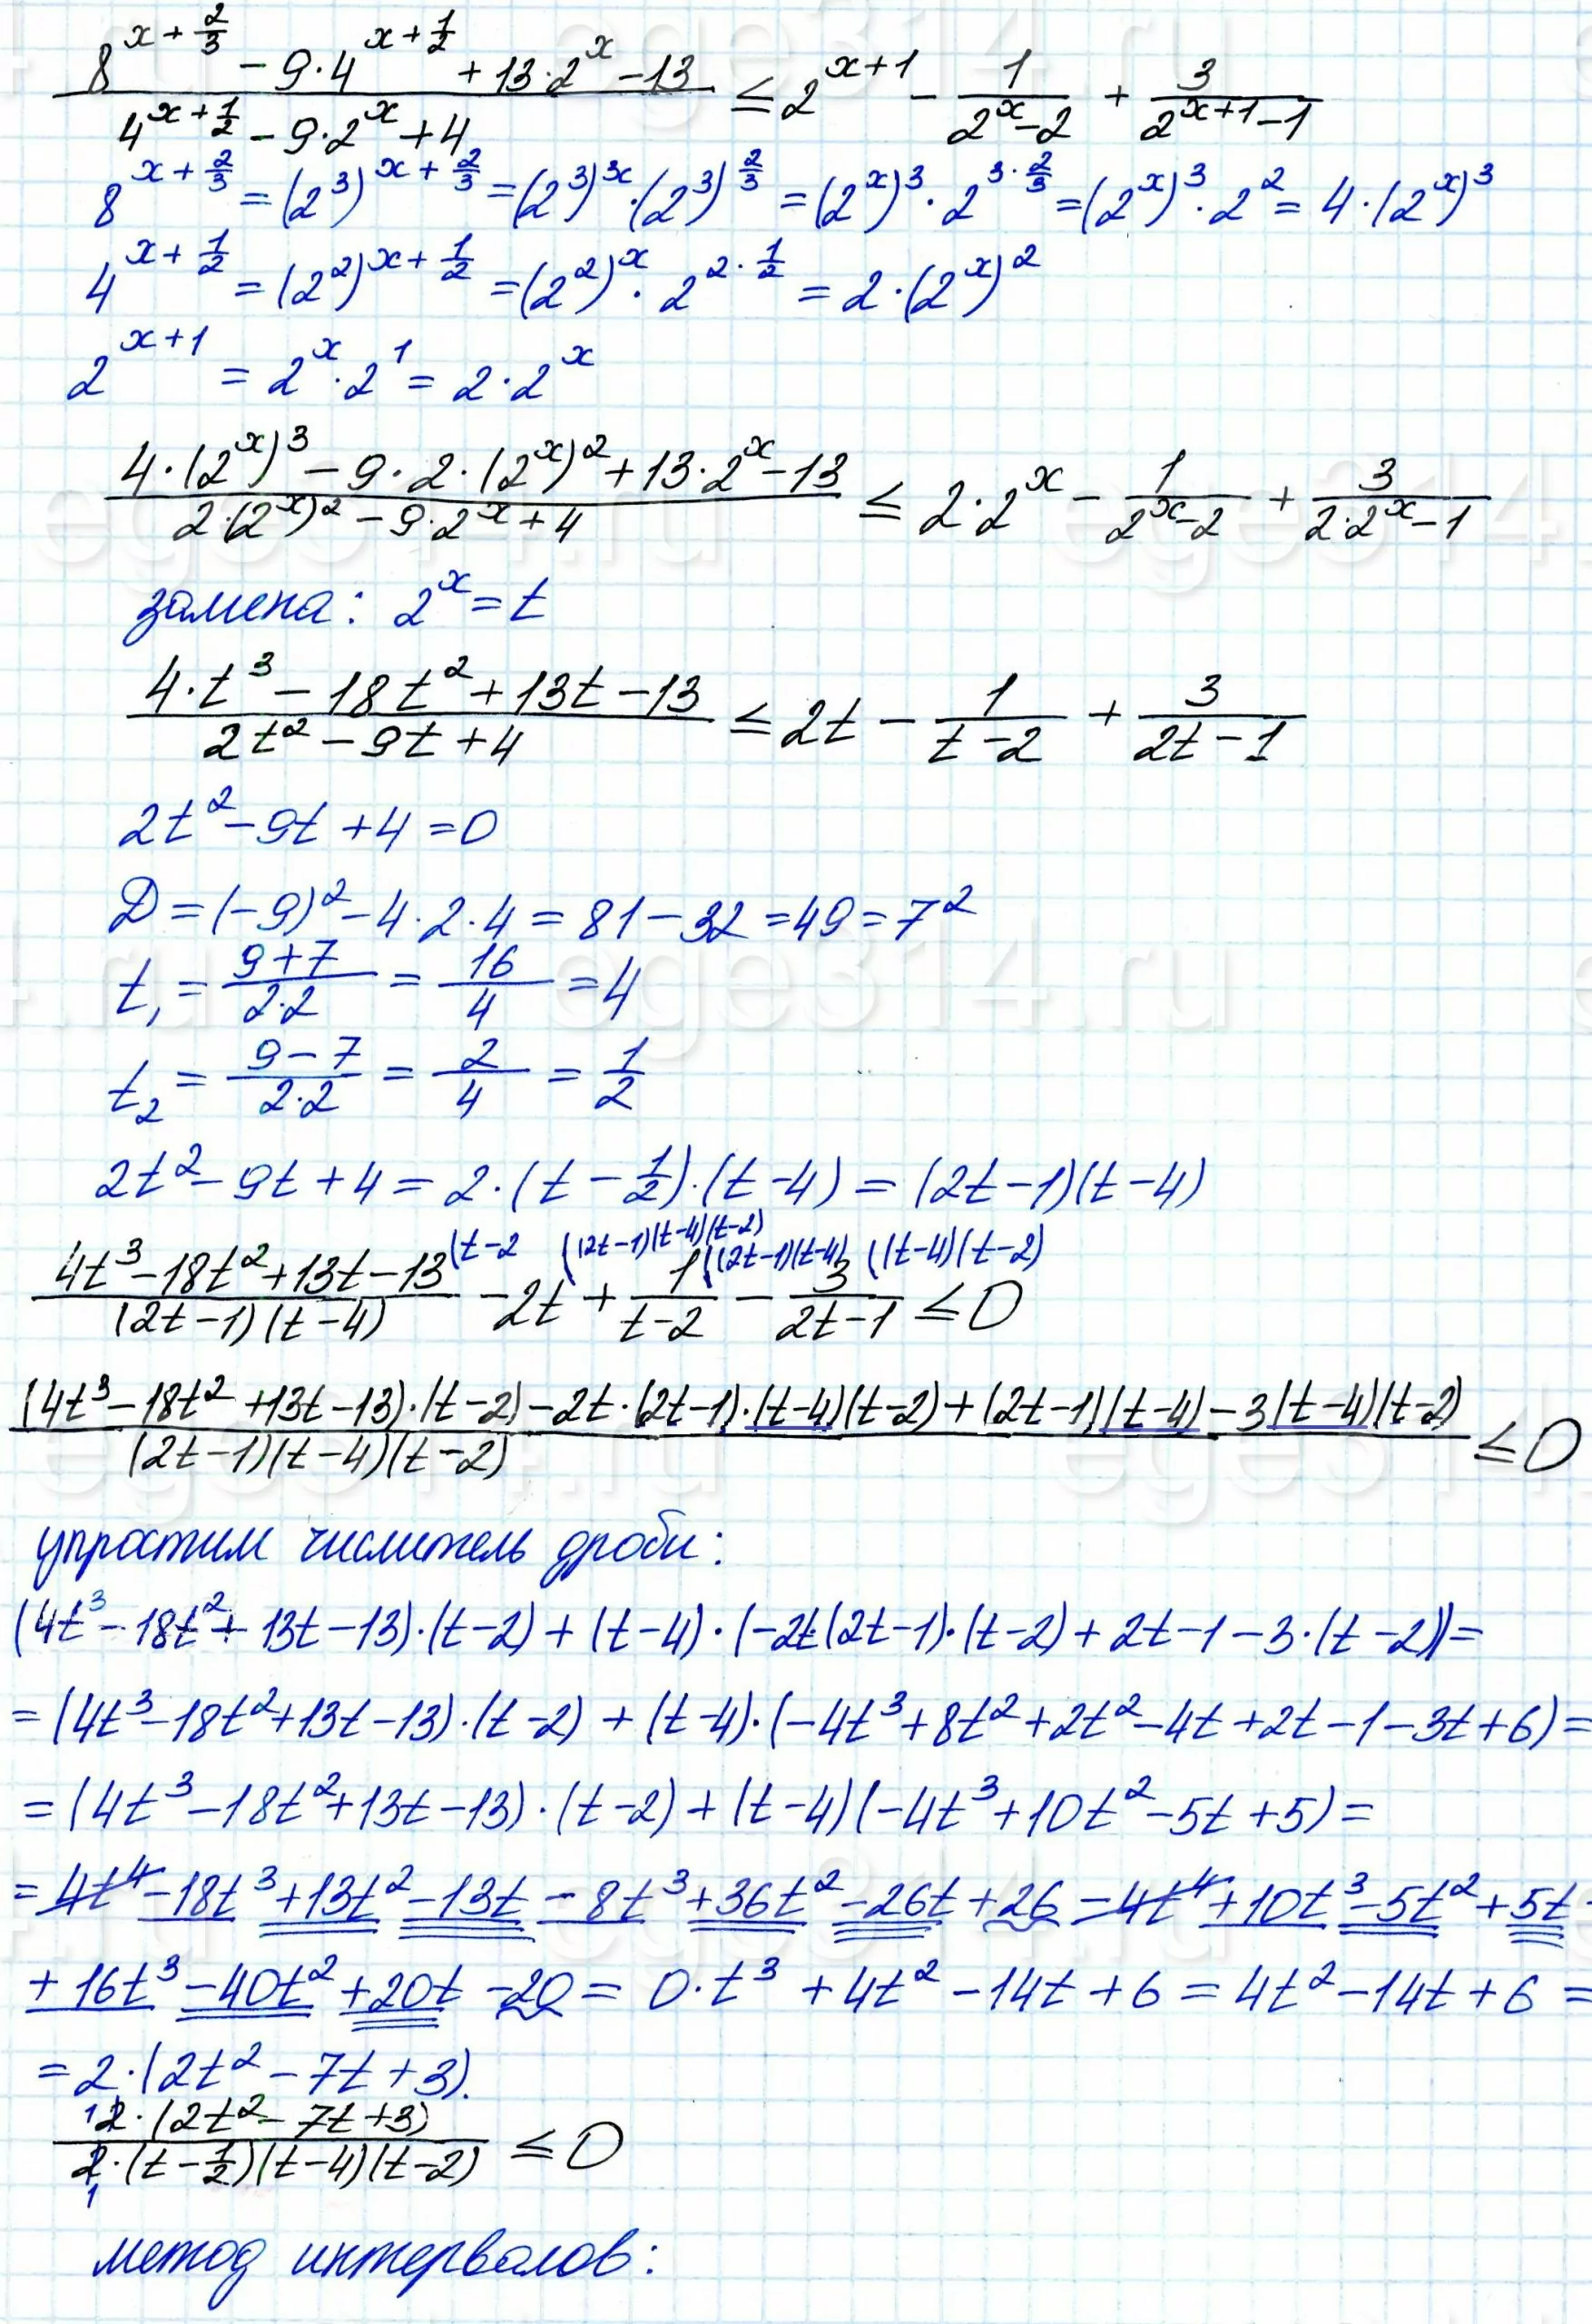 (8^(x+2/3) - 9·4^(x+1/2) + 13·2^x - 13)/(4^(x+1/2) - 9·2^x + 4) ≤ 2^(x+1) - 1/(2^x-2) + 3/(2^(x+1)-1)
8^(x+2/3) = (2^3)^(x+2/3) = (2^3)^x·(2^3)^(2/3) = (2^x)^3·2^(3·2/3) = (2^x)^3·2^2 = 4·(2^x)^3
4^(x+1/2) = (2^2)^(x+1/2) = (2^2)^x·2^(2·1/2) = 2·(2^x)^2
2^(x+1) = 2^x·2^1 = 2·2^x
(4·(2^x)^3 - 9·2·(2^x)^2 + 13·2^x - 13)/(2·(2^x)^2 - 9·2^x + 4) ≤ 2·2^x - 1/(2^x-2) + 3/(2·2^x-1)
замена: 2^x = t
(4·t^3 - 18t^2 + 13t - 13)/(2t^2 - 9t + 4) ≤ 2t - 1/(t-2) + 3/(2t-1)
2t^2 - 9t + 4 = 0
D = (-9)^2 - 4·2·4 = 81 - 32 = 49 = 7^2
t₁ = (9+7)/(2·2) = 16/4 = 4
t₂ = (9-7)/(2·2) = 2/4 = 1/2
2t^2 - 9t + 4 = 2·(t - 1/2)·(t-4) = (2t-1)(t-4)
(t-2 ((2t-1)(t-4)(t-2) ((2t-1)(t-4) ((t-4)(t-2)
(4t^3 - 18t^2 + 13t - 13)/((2t-1)(t-4)) - 2t + 1/(t-2) - 3/(2t-1) ≤ 0
((4t^3 - 18t^2 + 13t - 13)·(t-2) - 2t·(2t-1)·(t-4)(t-2) + (2t-1)(t-4) - 3(t-4)(t-2))/((2t-1)(t-4)(t-2)) ≤ 0
упростим числитель дроби:
(4t^3 - 18t^2 + 13t - 13)·(t-2) + (t-4)·(-2t·(2t-1)·(t-2) + 2t - 1 - 3·(t-2)) =
= (4t^3 - 18t^2 + 13t - 13)·(t-2) + (t-4)·(-4t^3 + 8t^2 + 2t^2 - 4t + 2t - 1 - 3t + 6) =
= (4t^3 - 18t^2 + 13t - 13)·(t-2) + (t-4)(-4t^3 + 10t^2 - 5t + 5) =
= 4t^4 - 18t^3 + 13t^2 - 13t - 8t^3 + 36t^2 - 26t + 26 - 4t^4 + 10t^3 - 5t^2 + 5t +
+ 16t^3 - 40t^2 + 20t - 20 = 0·t^3 + 4t^2 - 14t + 6 = 4t^2 - 14t + 6 =
= 2·(2t^2 - 7t + 3).
(2·(2t^2 - 7t + 3))/(2·(t - 1/2)(t-4)(t-2)) ≤ 0
метод интервалов: